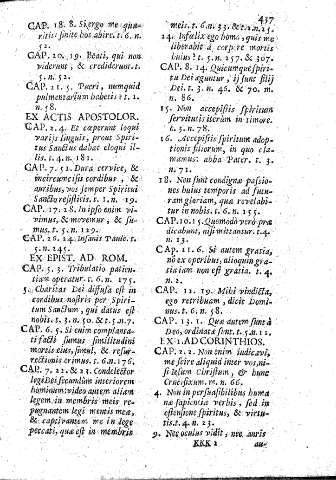 437
CAP. 18. 8. Si ergo me quæ-
ritis: sinite hos abire. t. 6. n.
52.
CAP. 20. 19. Beati, qui non
viderunt, & crediderunt. t.
5. n. 52.
CAP. 21. 5. Pueri, numquid
pulmentarium habetis? t. 2.
n. 58.
EX ACTIS APOSTOLOR.
CAP. 2. 4. Et cœperunt loqui
varijs linguis, prout Spiri-
tus Sanctus dabat eloqui il-
lis. t. 4. n. 181.
CAP. 7. 51. Dura cervice, &
incircumcisis cordibus, &
auribus, vos semper Spiritui
Sancto resistitis. t. 1. n. 19.
CAP. 17. 28. In ipso enim vi-
vimus, & movemur, & su-
mus. t. 5. n. 129.
CAP. 26. 24. Insanis Paule. t.
5. n. 245.
EX EPIST. AD ROM.
CAP. 5. 3. Tribulatio patien-
tiam operatur. t. 6. n. 175.
5. Charitas Dei diffusa est in
cordibus nostris per Spiri-
tum Sanctum, qui datus est
nobis. t. 3. n. 50. & t. 5. n. 7.
CAP. 6. 5. Si enim complanta-
ti facti sumus similitudini
mortis eius, simul, & resur-
rectionis erimus. t. 6. n. 176.
CAP. 7. 22. & 23. Condelector
legi Dei secundum interiorem
hominem: video autem aliam
legem in membris meis re-
pugnantem legi mentis meæ,
& captivantem me in lege
peccati, quæ est in membris
meis. t. 6. n. 33. & t. 2. n. 25.
24. Infœlix ego homo, quis me
liberabit à corpore mortis
huius? t. 5. n. 157. & 307.
CAP. 8. 14. Quicumque spiri-
tu Dei aguntur, ij sunt filij
Dei. t. 3. n. 46. & 70. m.
n. 86.
15. Non accepistis spiritum
servitutis iterum in timore.
t. 3. n. 78.
16. Accepistis spiritum adop-
tionis filiorum, in quo cla-
mamus: abba Pater. t. 3.
n. 71.
18. Non sunt condignæ passio-
nes huius temporis ad futu-
ram gloriam, quæ revelabi-
tur in nobis. t. 6. n. 155.
CAP. 10. 15. Quomodo verò præ-
dicabunt, nisi mittantur. t. 4.
n. 23.
Cap. 11. 6. Si autem gratia,
nõ ex operibus, alioquin gra-
tia iam non est gratia. t. 4.
n. 2.
CAP. 12. 19. Mihi vindicta,
ego retribuam, dicit Domi-
nus. t. 6. n. 58.
CAP. 13. 1. Quæ autem sunt à
Deo, ordinatæ sunt. t. 5. n. 12.
EX 1. AD CORINTHIOS.
CAP. 2. 2. Non enim iudicavi,
me scire aliquid inter vos, ni-
si Iesum Christum, & hunc
Crucifixum. m. n. 66.
4. Non in persuasibilibus huma-
næ sapientiæ verbis, sed in
ostensione spiritus, & virtu-
tis. t. 4. n. 23.
9. Nec oculus vidit, nec auris
KKK 2 au-